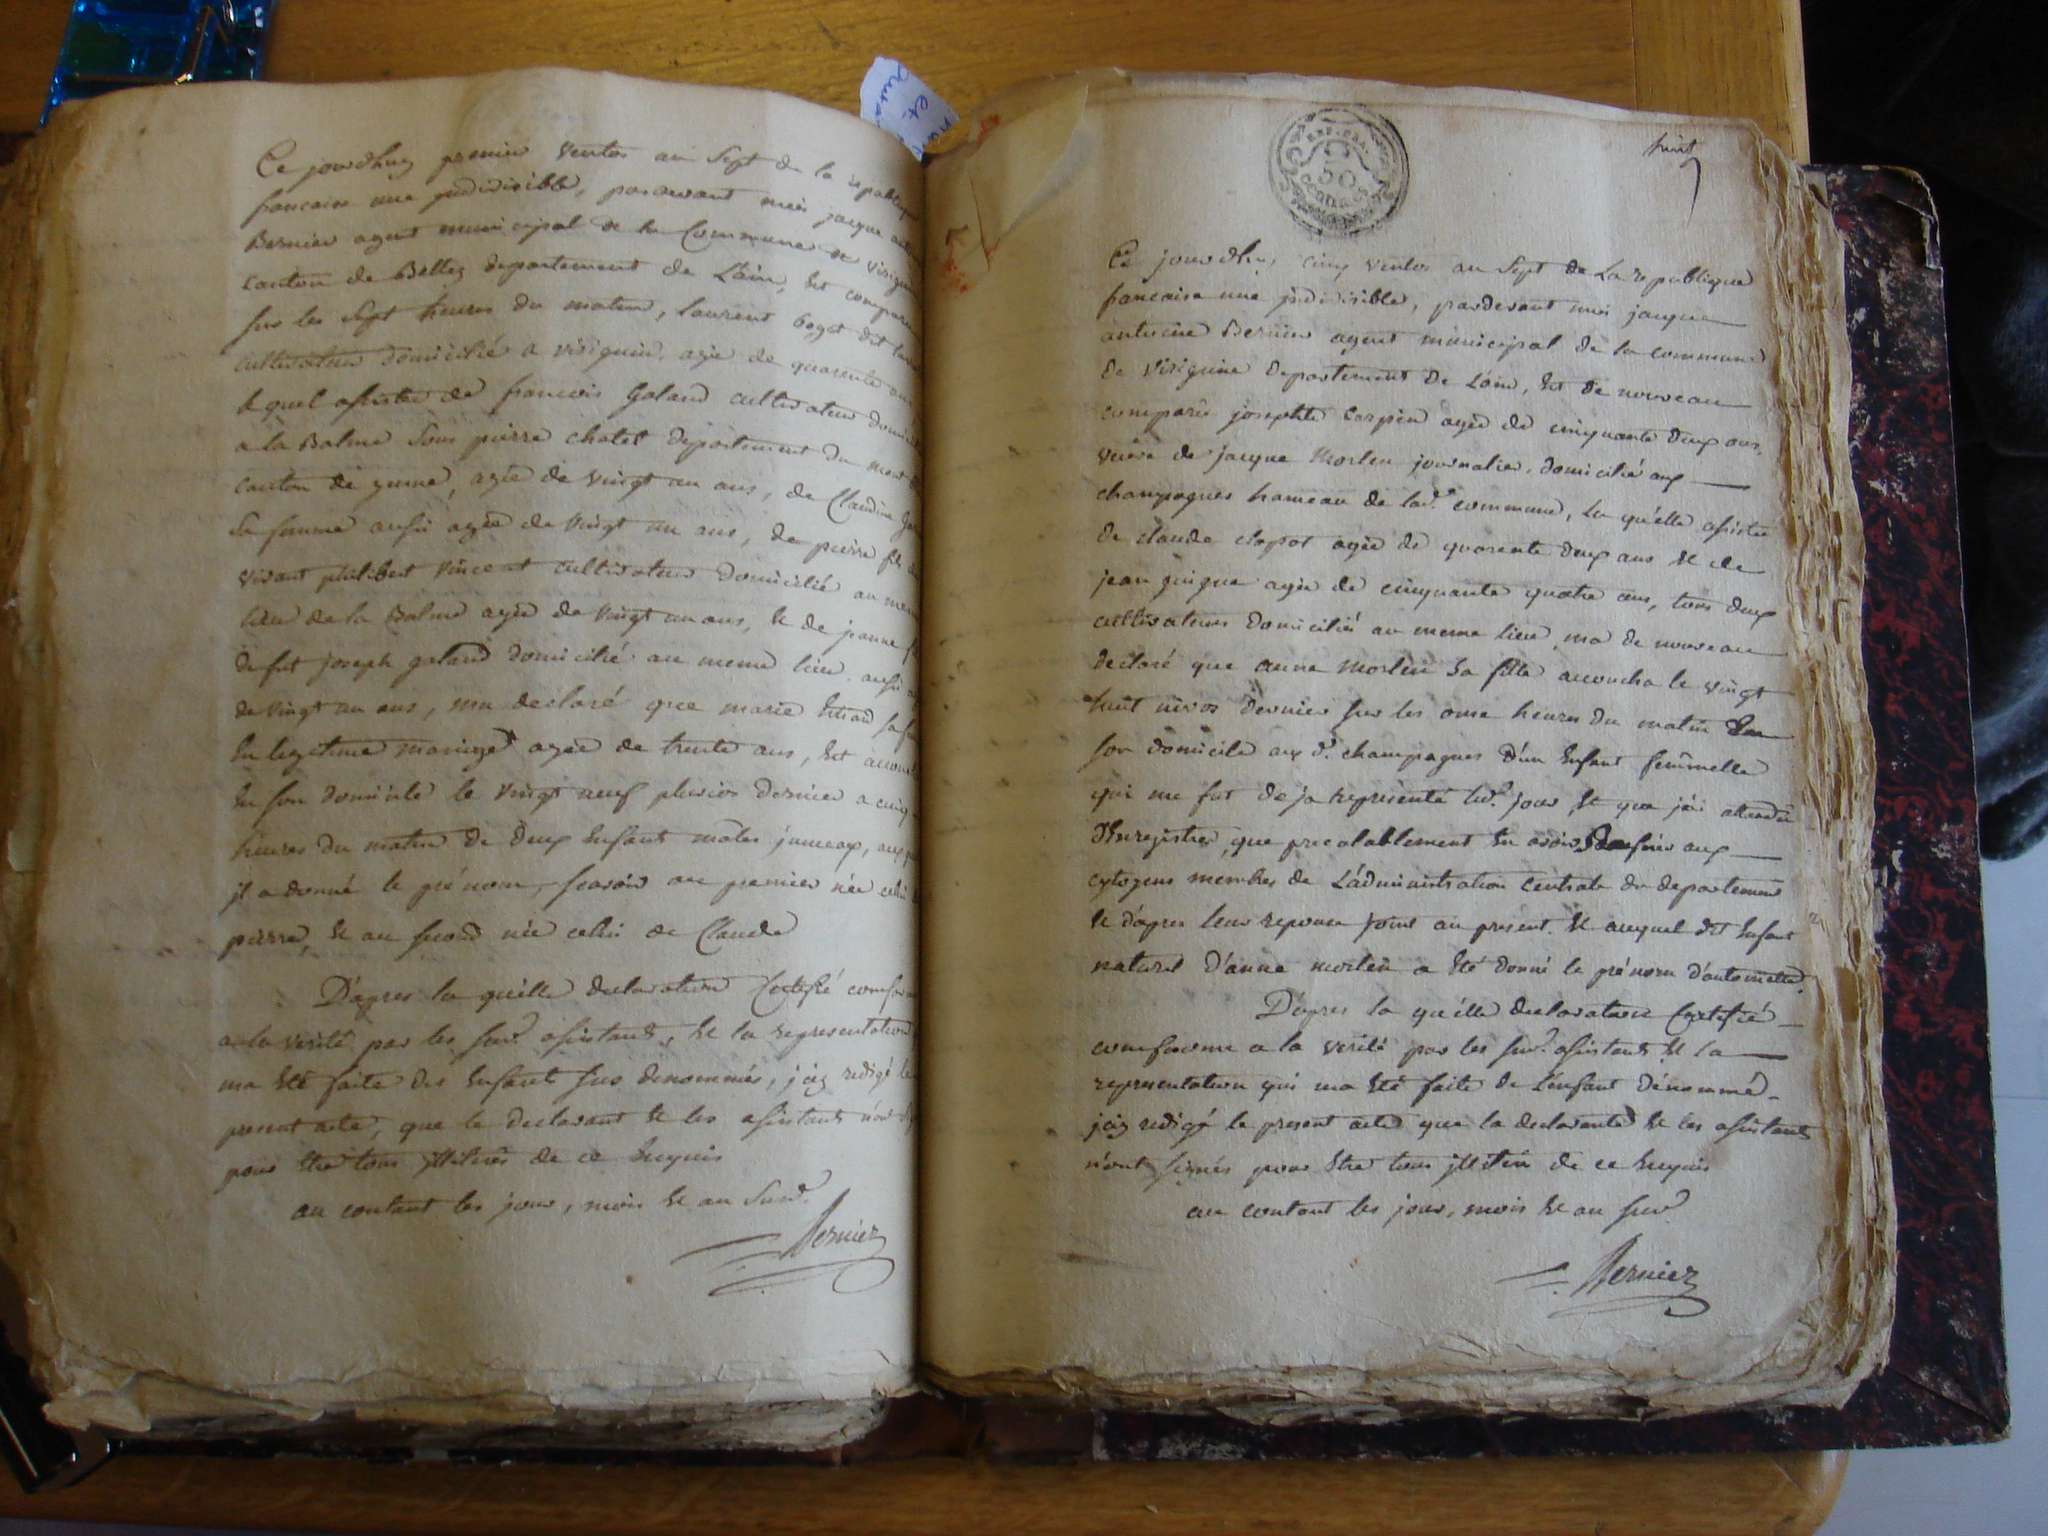 Ce jourdhuy premier ventos an Sept de la republique
francaise une jndivisible, pardevant moi jacque
Bernier agent municipal de la Commune de Virignin
canton de Belley departement de L'ain, Est comparu
sur les Sept heures du matin, laurent dit
cultivateur domicilié a virignin, agée de quarente ans
le quel assisté de francois Galand cultivateur
a la Balme Sous pierre chatel departement du mont
canton de yenne, agée de vingt un ans, de Claudine
Sa femme aussi agée de vingt un ans, de pierre fils
vivant philibert vincent cultivateur domicilié au meme
lieu de la Balme agée de vingt un ans, Et de jeanne
defut joseph galand domicilié au meme lieu aussi
de vingt un ans, ma declaré que marie sa
En legitime mariage agée de trente ans, Est
En son domicile le vingt neuf plusios dernier a cinq
heures du matin de deux Enfant mâles jumeaux,
jl a donné le prénom, scavoir au premier née celui
pierre, Et au second née celui de Claude
D'apres la quelle declaration Certifié
a la verité par les susd. assistants, Et la representation
ma Eté faite des Enfants sus denommés, j'aiy redigé le
present acte, que le declarant Et les assistants n'ont
pour Etre tous jlliterés de ce Enquis
au contant les jour, mois Et an Susd.
Bernier
et
REP. FRA.
50
huit
Ce jourdhuy cinq ventos an Sept de La republique
francaise une jndivisible, pardevant moi jacque
antoine Bernier agent municipal de la commune
de virignine departement de L'ain, Est de nouveau
comparu josephte Carpin agée de cinquante deux ans,
veuve de jacque Morlin journalier, domicilié aux
champagnes hameau de lad. commune, La quelle assistée
de claude clopot agée de quarente deux ans Et de
jean guigue agée de cinquante quatre ans, tous deux
cultivateurs domiciliés au meme lieu, ma de nouveau
declaré que anne Morlin sa fille accoucha le vingt
huit nivos dernier sur les onse heures du matin En
son domicile aux d. champagnes d'un Enfant femmelle
qui me fut deja representé led. jour, Et que j'ai attendu
d'Enregistrer, que prealablement En avoir aux
cytoyens membres de L'administration Centrale du departement
Et d'apres leur reponce joint au present. Et auquel dit Enfant
naturel d'anne morlin a Eté donné le prénom d'antoinette.
D'apres la quelle declaration Certifié
comforme a la verité par les susd. assistants Et la
representation qui ma Eté faite de L'enfant dénommé
j'aiy redigé le present acte que la declarante Et les assistants
n'ont signés pour Etre tous jlliteré de ce Enquis
au contant les jour, mois Et an susd.
Bernier